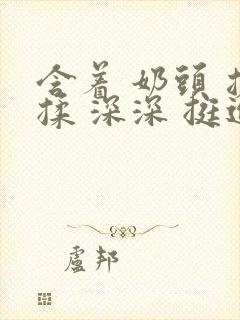 含着 奶頭 
揉 深深 挺进
盧邦